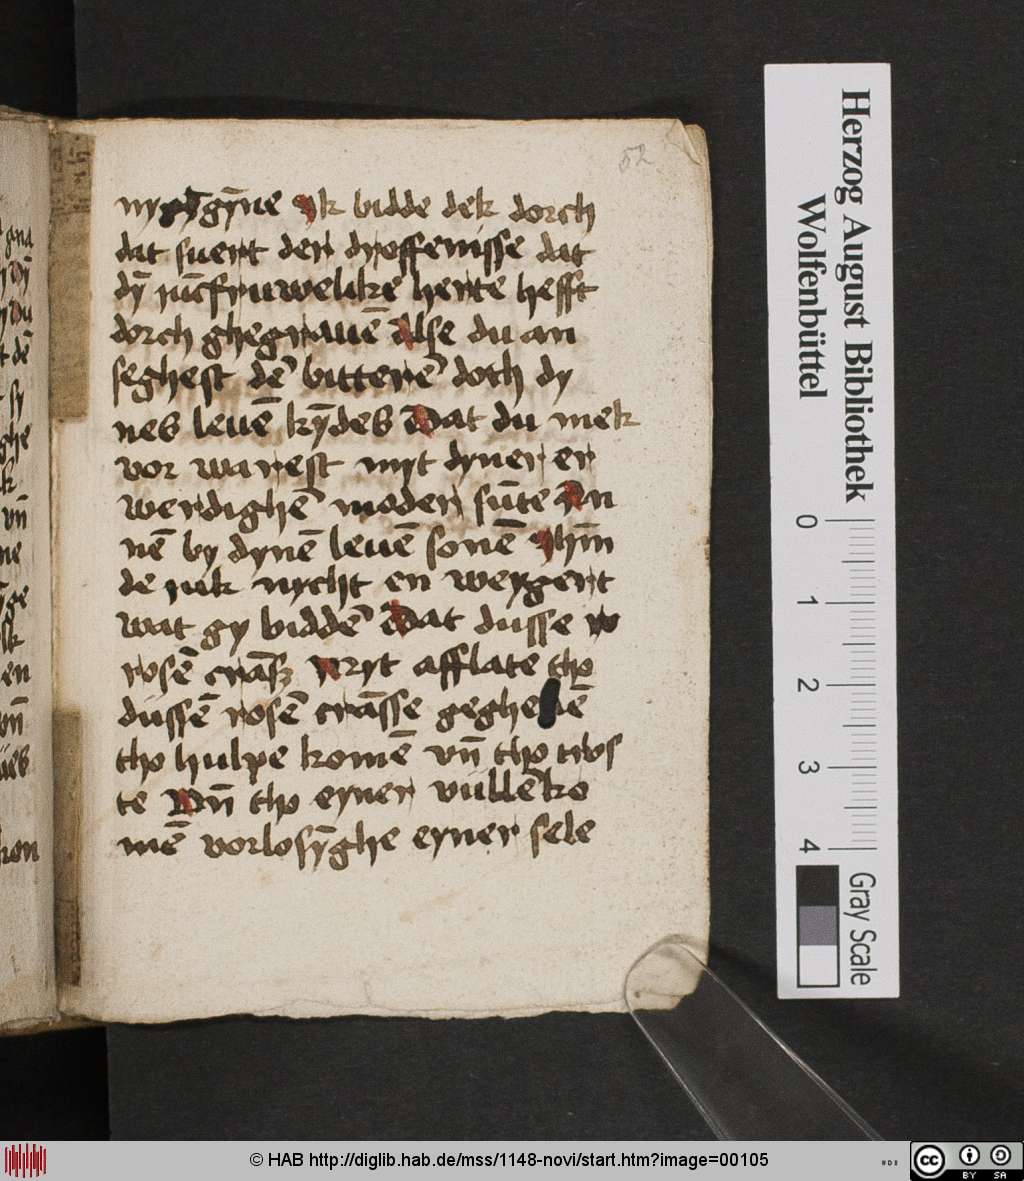 52
gȳne Ik bidde dek dorch
dat suert der droffenisse dat
dȳ iūcfruwelike herte hefft
dorch ghegrauē Alse du an
seghest dē bitterē doth dy
nes leuē kȳdes Dat du mek
vor warest myt dyner er
werdighē moder sūte An
nē by dynē leuē sonē Ihm̄
de iuk nycht en weygert
wat gy biddē Dat dusse
rosē crāsz vryt afflate tho
dussē rosē crāsse geghe ē
tho hulpe komē vn̄ tho tros
te Vn̄ tho eyner vullēko
mē vorlosȳghe eyner sele
Herzog August Bibliothek
Wolfenbüttel
0 1 2 3 4
Gray Scale
© HAB http://diglib.hab.de/mss/1148-novi/start.htm?image=00105
cc BY SA